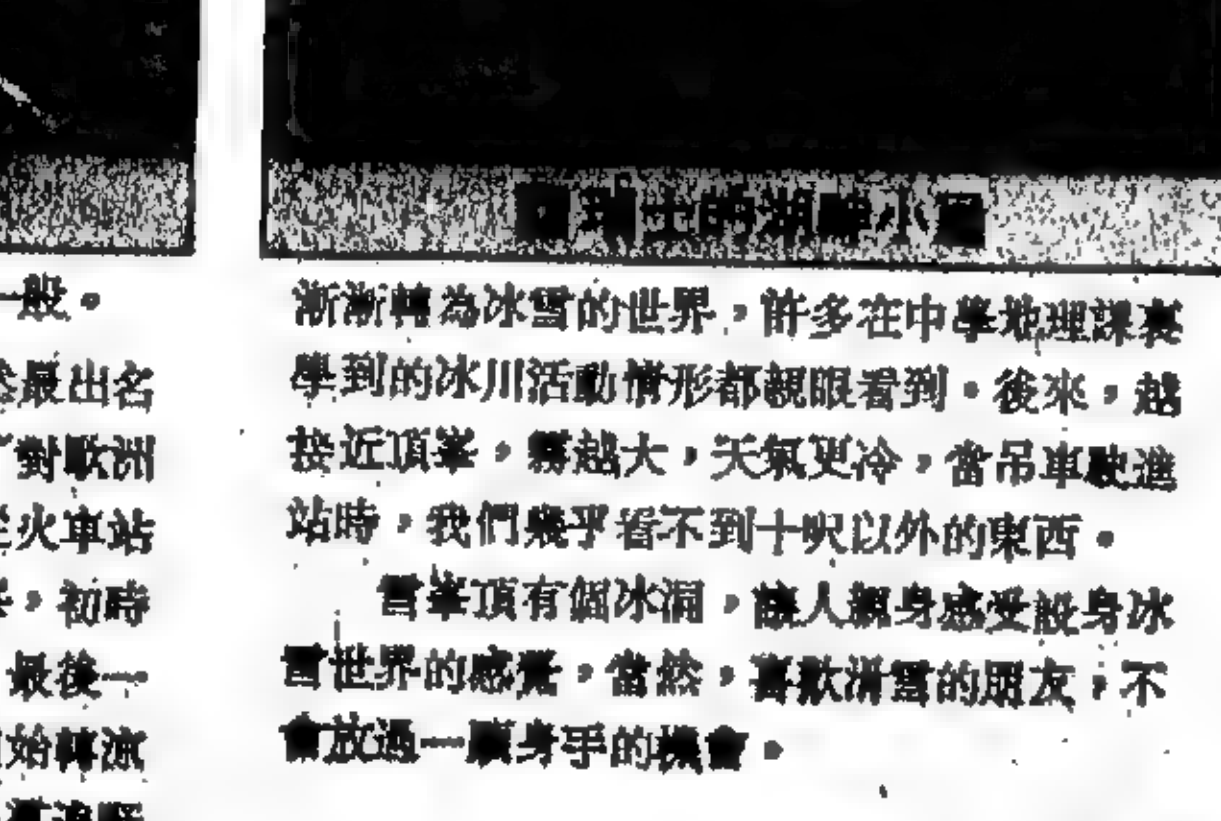 瑞士的湖畔小
一般。
最出名
對歐洲
火車站
，初時
最後一
始轉涼
漸漸轉為冰雪的世界，許多在中學地理課裏
學到的冰川活動情形都親眼看到。後來，越
接近頂峯，霧越大，天氣更冷，當吊車駛進
站時，我們幾乎看不到十呎以外的東西。
雪峯頂有個冰洞，讓人親身感受設身冰
雪世界的感覺，當然，喜歡滑雪的朋友，不
會放過一顯身手的機會。